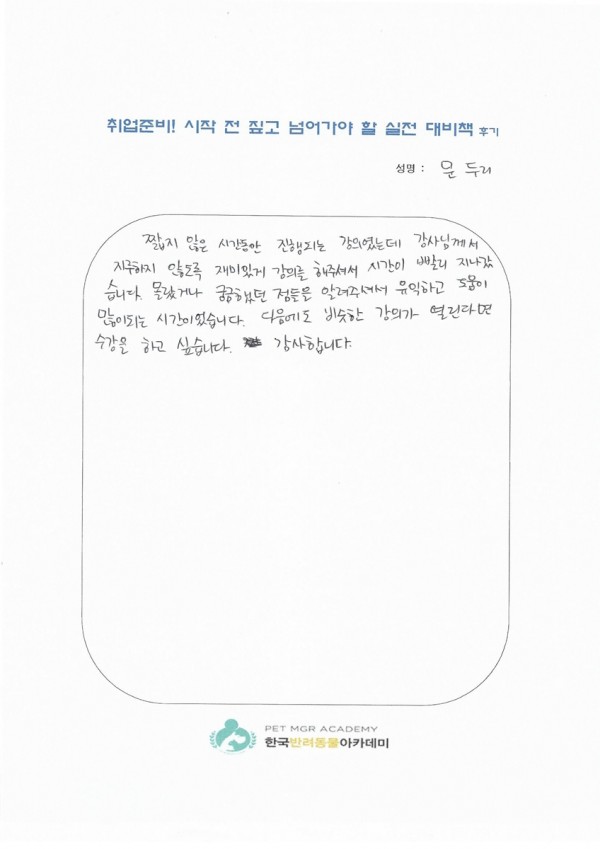 취업준비! 시작 전 짚고 넘어가야 할 실전 대비책 후기
성명 : 문 두리
짧지 않은 시간동안 진행되는 강의였는데 강사님께서
지루하지 않도록 재미있게 강의를 해주셔서 시간이 빨리 지나갔
습니다. 몰랐거나 궁금했던 점들을 알려주셔서 유익하고 도움이
많이되는 시간이었습니다. 다음에도 비슷한 강의가 열린다면
수강을 하고 싶습니다. 감사합니다.
PET MGR ACADEMY
한국반려동물아카데미